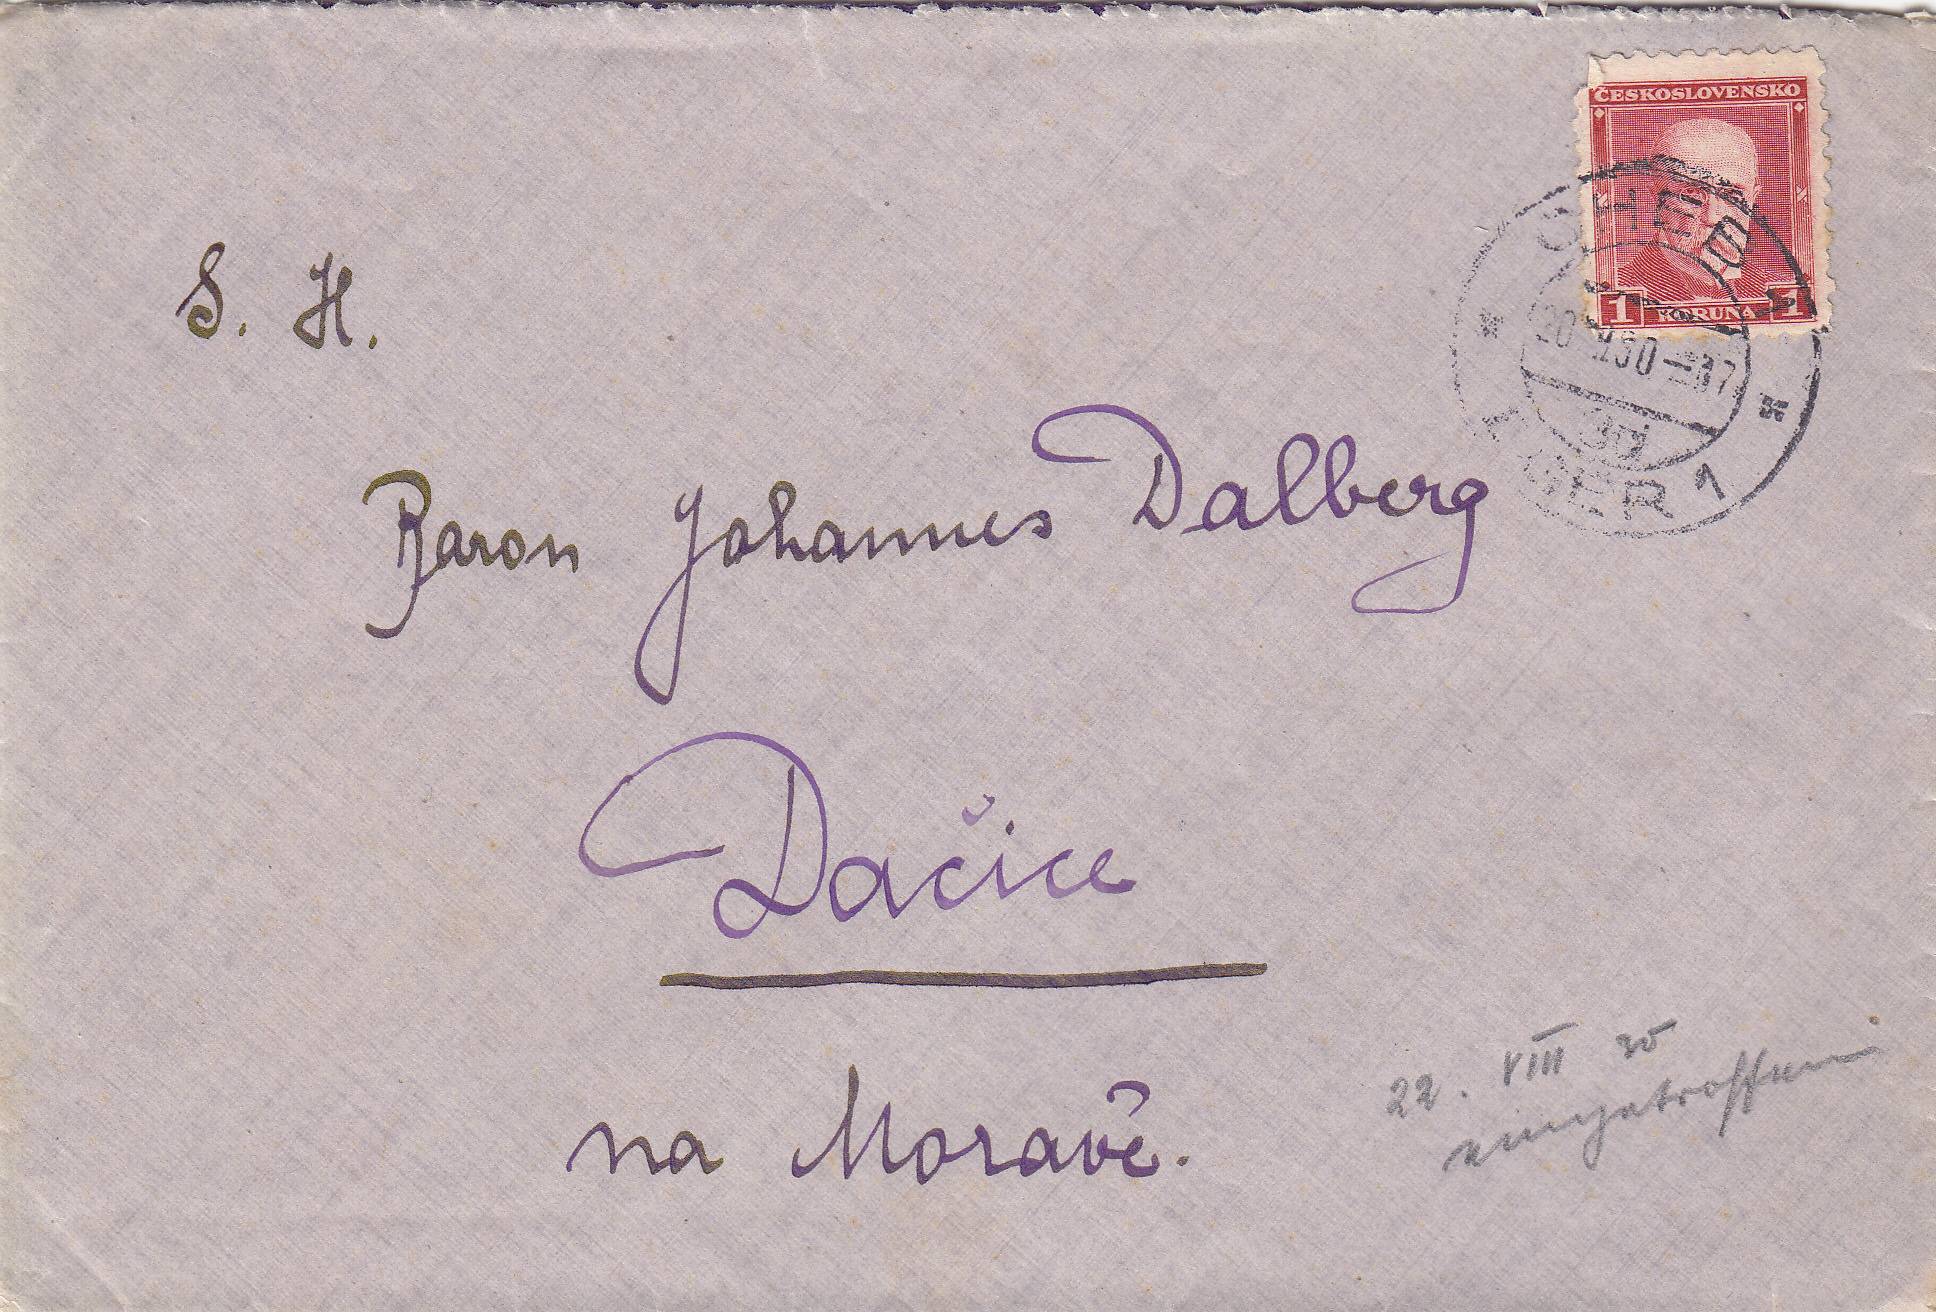 ČESKOSLOVENSKO
1 KORUNA 1
CHEB 1
EGER 1
S. H.
Baron Johannes Dalberg
Dačice
na Moravě.
22. VIII 30
eingetroffen